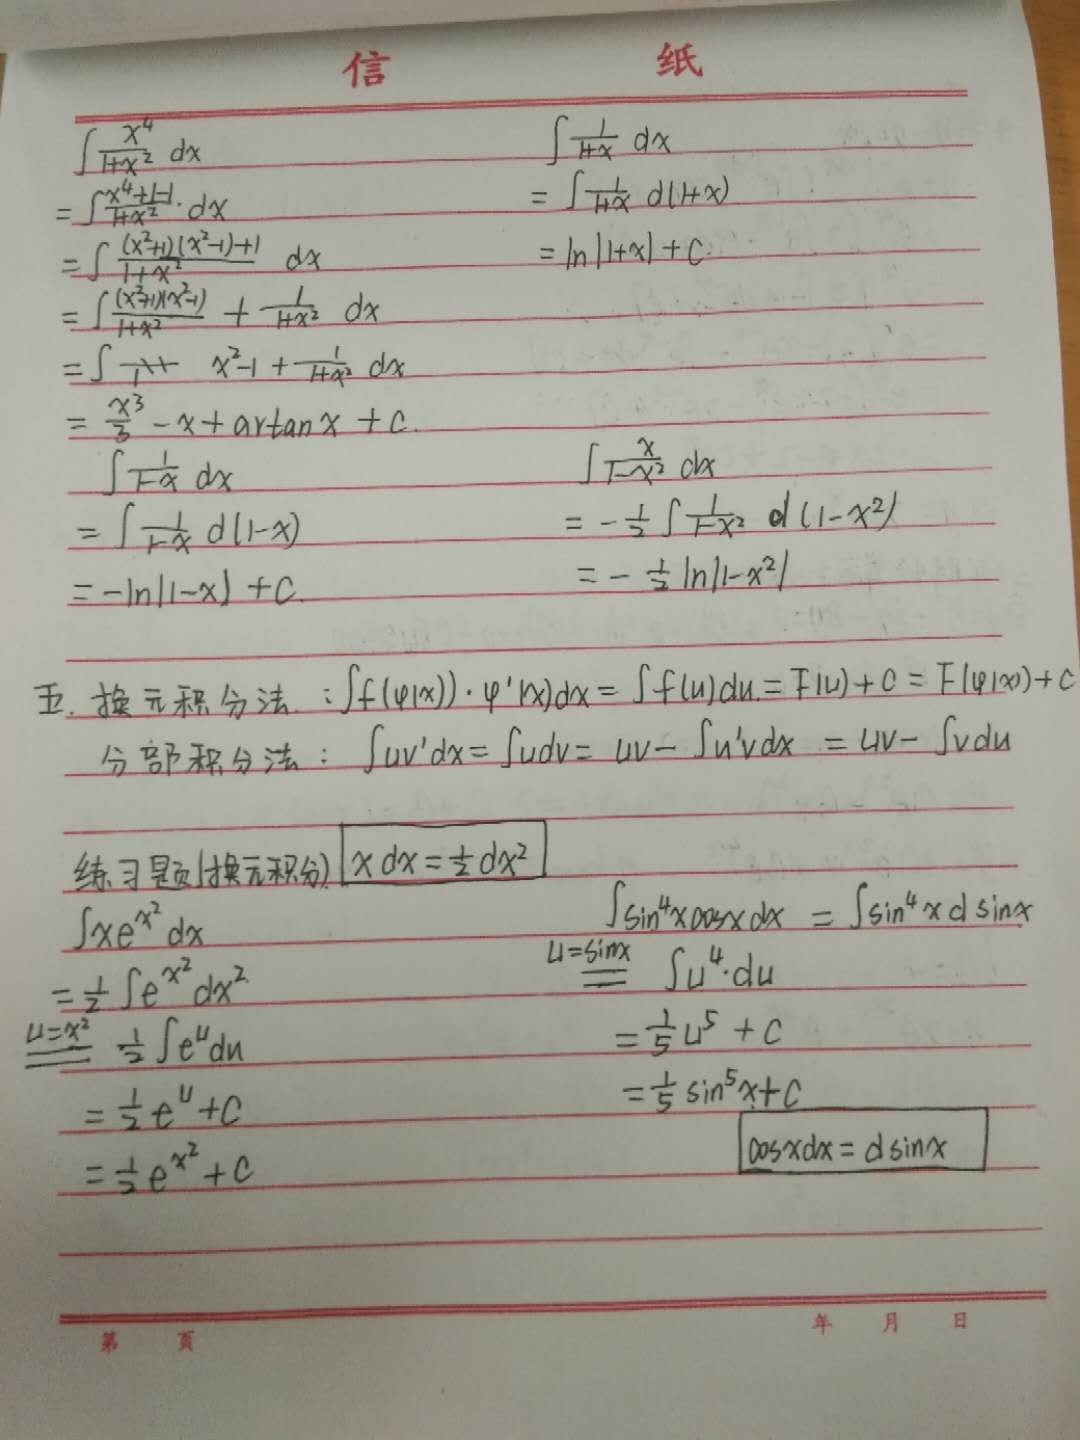 信 纸
∫ x⁴/(1+x²) dx
= ∫ (x⁴+1-1)/(1+x²) · dx
= ∫ ((x²+1)(x²-1)+1)/(1+x²) dx
= ∫ ((x²+1)(x²-1))/(1+x²) + 1/(1+x²) dx
= ∫ x²-1 + 1/(1+x²) dx
= x³/3 - x + artan x + C.
∫ 1/(1+x) dx
= ∫ 1/(1+x) d(1+x)
= ln|1+x| + C.
∫ 1/(1-x) dx
= ∫ 1/(1-x) d(1-x)
= -ln|1-x| + C.
∫ x/(1-x²) dx
= -1/2 ∫ 1/(1-x²) d(1-x²)
= -1/2 ln|1-x²|
五. 换元积分法 : ∫f(φ(x))·φ'(x)dx = ∫f(u)du = F(u)+C = F(φ(x))+C
分部积分法 : ∫uv'dx = ∫udv = uv - ∫u'vdx = uv - ∫vdu
练习题(换元积分) x dx = 1/2 dx²
∫xe^(x²) dx
= 1/2 ∫e^(x²) dx²
u=x² = 1/2 ∫e^u du
= 1/2 e^u + C
= 1/2 e^(x²) + C
∫sin⁴x cosx dx = ∫sin⁴x d sinx
u=sinx = ∫u⁴·du
= 1/5 u⁵ + C
= 1/5 sin⁵x + C
cosxdx = d sinx
第 页 年 月 日